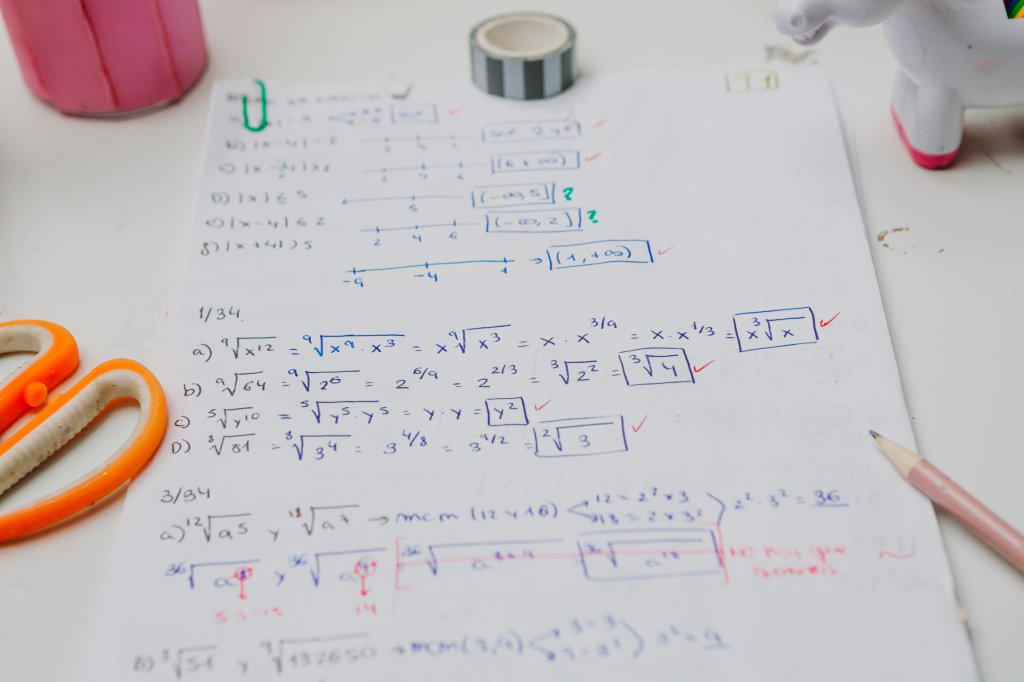 b) |x-4| = 2
c) |x
[(6, +∞)]
D) |x| ≤ 5 5 [(-∞, 5]] ?
e) |x-4| ≤ 2 2 4 6 [(-∞, 2)] ?
f) |x+4| > 5 -9 -4 1 → [(1, +∞)]
1/34
a) ⁹√x¹² = ⁹√x⁹·x³ = x ⁹√x³ = x · x^3/9 = x·x^1/3 = x ³√x
b) ⁹√64 = ⁹√2⁶ = 2^6/9 = 2^2/3 = ³√2² = ³√4
c) ⁵√y¹⁰ = ⁵√y⁵·y⁵ = y·y = y²
D) ⁸√81 = ⁸√3⁴ = 3^4/8 = 3^1/2 = ²√3
3/34
a) ¹²√a⁵ y ¹⁸√a⁷ → mcm (12 y 18) 12 = 2² × 3 18 = 2 × 3² 2²·3² = 36
³⁶√a y ³⁶√a ³⁶√a ³⁶√a
5·3=15 14 No hay que
B) ³√51 y ⁹√132650 → mcm (3,9) 3=3 9=3² 3²=9